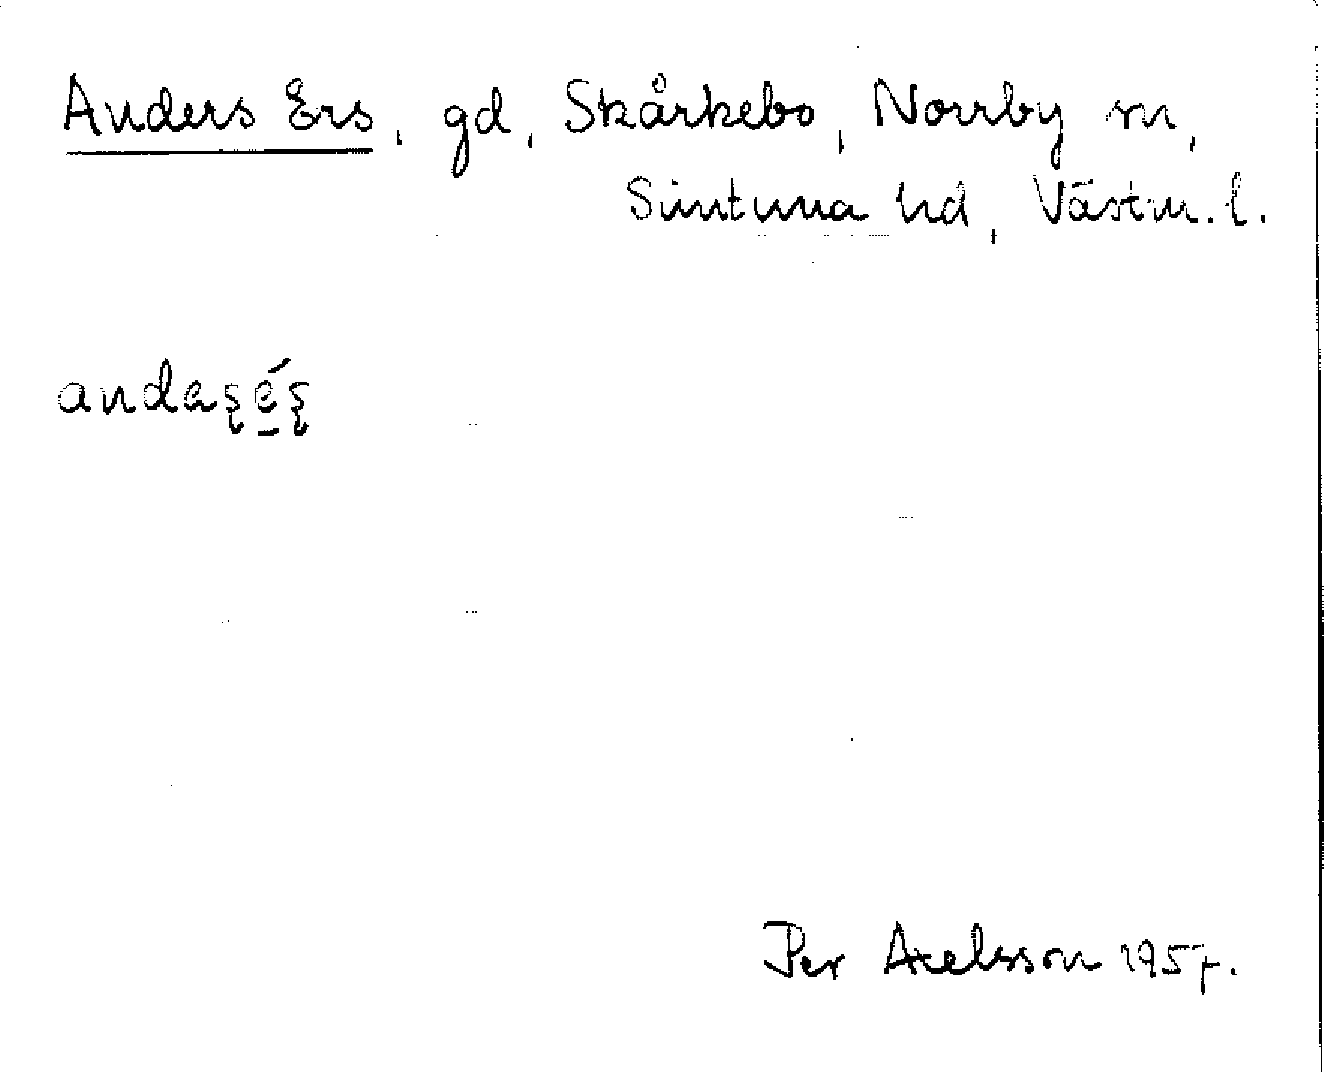 Anders Ers, gd, Skårkebo, Norrby sn,
Simtuna hd, Västm. l.
andaʂé̱ʂ
Per Axelsson 1957.